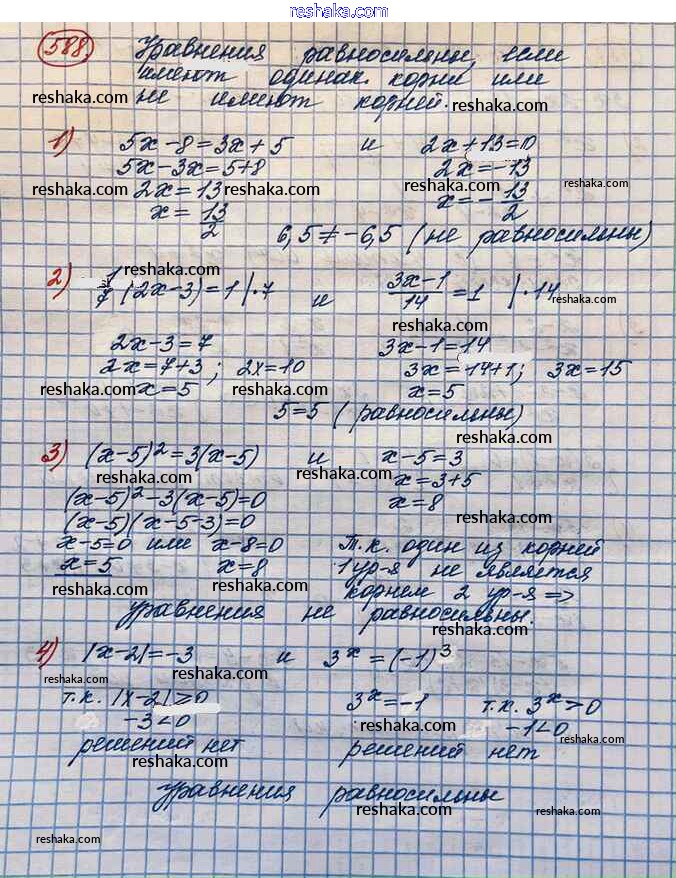 reshaka.com
588.
Уравнения равносильны, если
имеют одинак. корни или
не имеют корней.
reshaka.com reshaka.com
1) 5x-8=3x+5 и 2x+13=0
5x-3x=5+8 2x=-13
reshaka.com 2x=13 reshaka.com x=-13/2 reshaka.com
x=13/2
6,5≠-6,5 (не равносильны)
reshaka.com reshaka.com
2) 1/7 (2x-3)=1 |·7 и (3x-1)/14=1 |·14
reshaka.com
reshaka.com
2x-3=7 3x-1=14
2x=7+3; 2x=10 3x=14+1; 3x=15
reshaka.com x=5 x=5
5=5 (равносильны)
reshaka.com
reshaka.com
3) (x-5)²=3(x-5) и x-5=3
reshaka.com x=3+5
(x-5)²-3(x-5)=0 x=8
(x-5)(x-5-3)=0 reshaka.com
x-5=0 или x-8=0 Т.к. один из корней
x=5 x=8 1 ур-я не является
reshaka.com корнем 2 ур-я =>
уравнения не равносильны.
reshaka.com
4) |x-2|=-3 и 3ˣ=(-1)³
reshaka.com reshaka.com
т.к. |x-2|≥0 3ˣ=-1 т.к. 3ˣ>0
-3<0 -1<0
reshaka.com
решений нет решений нет
reshaka.com reshaka.com
Уравнения равносильны
reshaka.com reshaka.com
reshaka.com